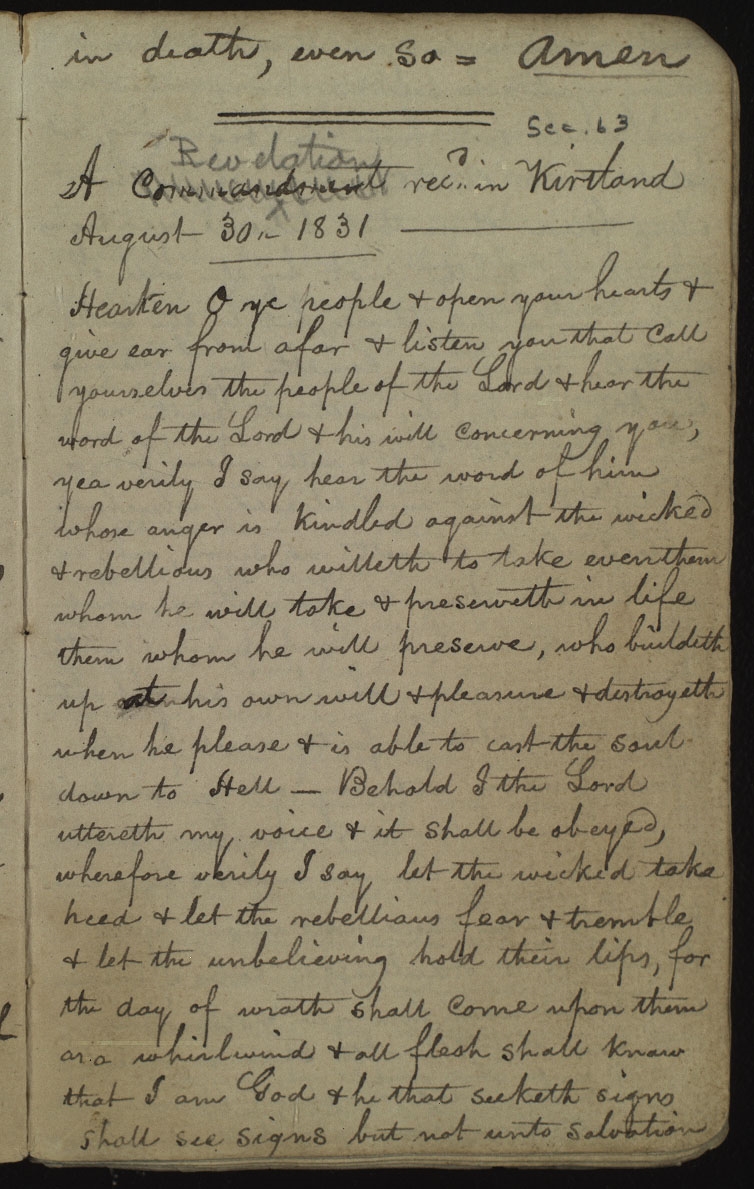 in death, even So = Amen
Sec. 63
Revelation
A Commandment recd. in Kirtland
August 30th 1831
Hearken O ye people & open your hearts &
give ear from afar & listen you that Call
yourselves the people of the Lord & hear the
word of the Lord & his will concerning you,
yea verily I say hear the word of him
whose anger is kindled against the wicked
& rebellious who willeth to take even them
whom he will take & preserveth in life
them whom he will preserve, who buildeth
up at his own will & pleasure & destroyeth
when he please & is able to cast the soul
down to Hell — Behold I the Lord
uttereth my voice & it shall be obeyed,
wherefore verily I say let the wicked take
heed & let the rebellious fear & tremble
& let the unbelieving hold their lips, for
the day of wrath shall come upon them
as a whirlwind & all flesh shall know
that I am God & he that seeketh signs
shall see signs but not unto salvation